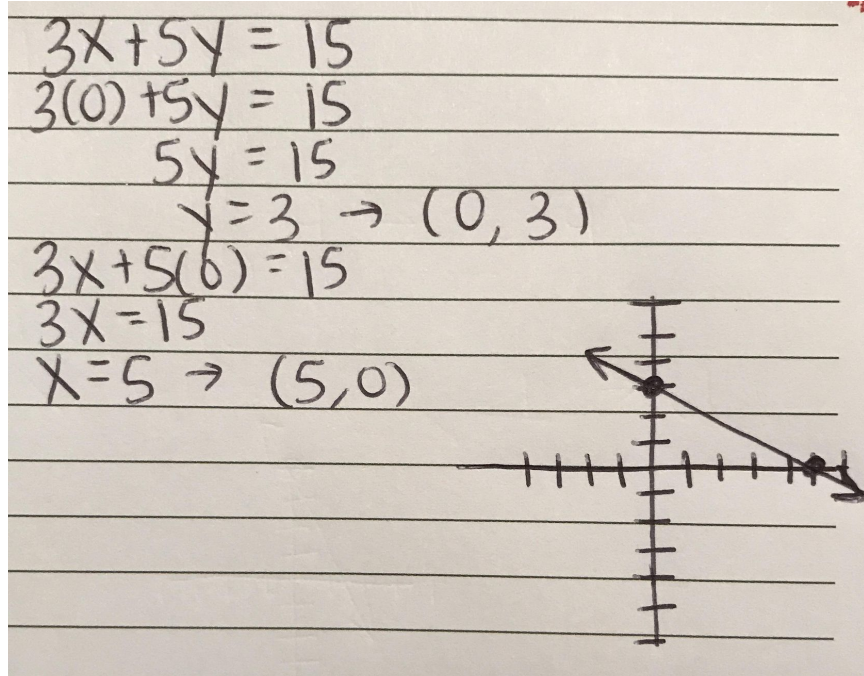 3x+5y = 15
3(0)+5y = 15
5y = 15
y = 3 → (0, 3)
3x+5(0) = 15
3x = 15
x = 5 → (5,0)